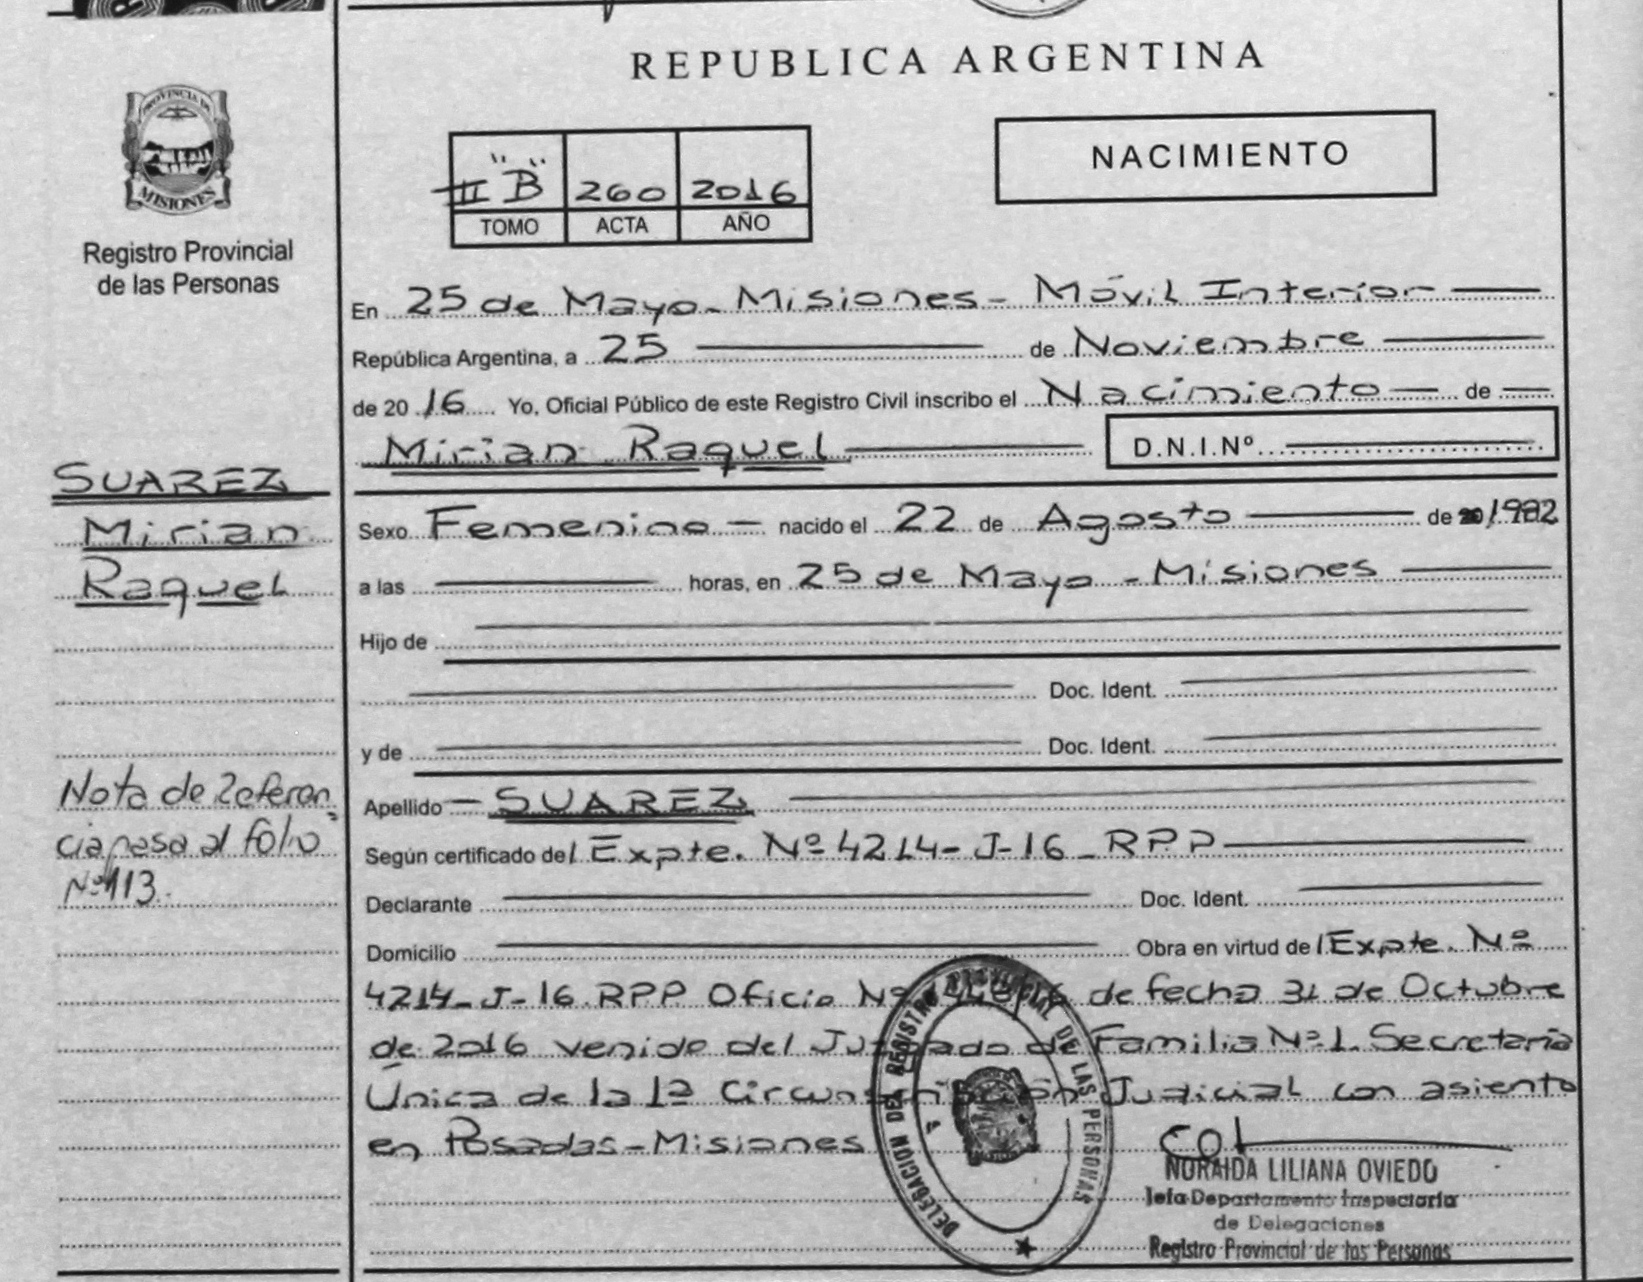 REPUBLICA ARGENTINA
PROVINCIA DE
MISIONES
Registro Provincial
de las Personas
NACIMIENTO
II "B" 260 2016
TOMO ACTA AÑO
En 25 de Mayo - Misiones - Móvil Interior
República Argentina, a 25 de Noviembre
de 2016 Yo, Oficial Público de este Registro Civil inscribo el Nacimiento de
Mirian Raquel D.N.I.Nº
SUAREZ
Mirian
Raquel
Sexo Femenino nacido el 22 de Agosto de 1982
a las horas, en 25 de Mayo - Misiones
Hijo de
Doc. Ident.
y de Doc. Ident.
Nota de Referen
cia pasa al folio
Nº 113.
Apellido SUAREZ
Según certificado del Expte. Nº 4214-J-16 RPP
Declarante Doc. Ident.
Domicilio Obra en virtud del Expte. Nº
4214-J-16 RPP Oficio Nº de fecha 31 de Octubre
de 2016 venido del Juzgado de Familia Nº 1. Secretaría
Única de la 1ª Circunscripción Judicial con asiento
en Posadas - Misiones
DELEGACION DEL REGISTRO PROVINCIAL DE LAS PERSONAS
NORAIDA LILIANA OVIEDO
Jefa Departamento Inspectoria
de Delegaciones
Registro Provincial de las Personas